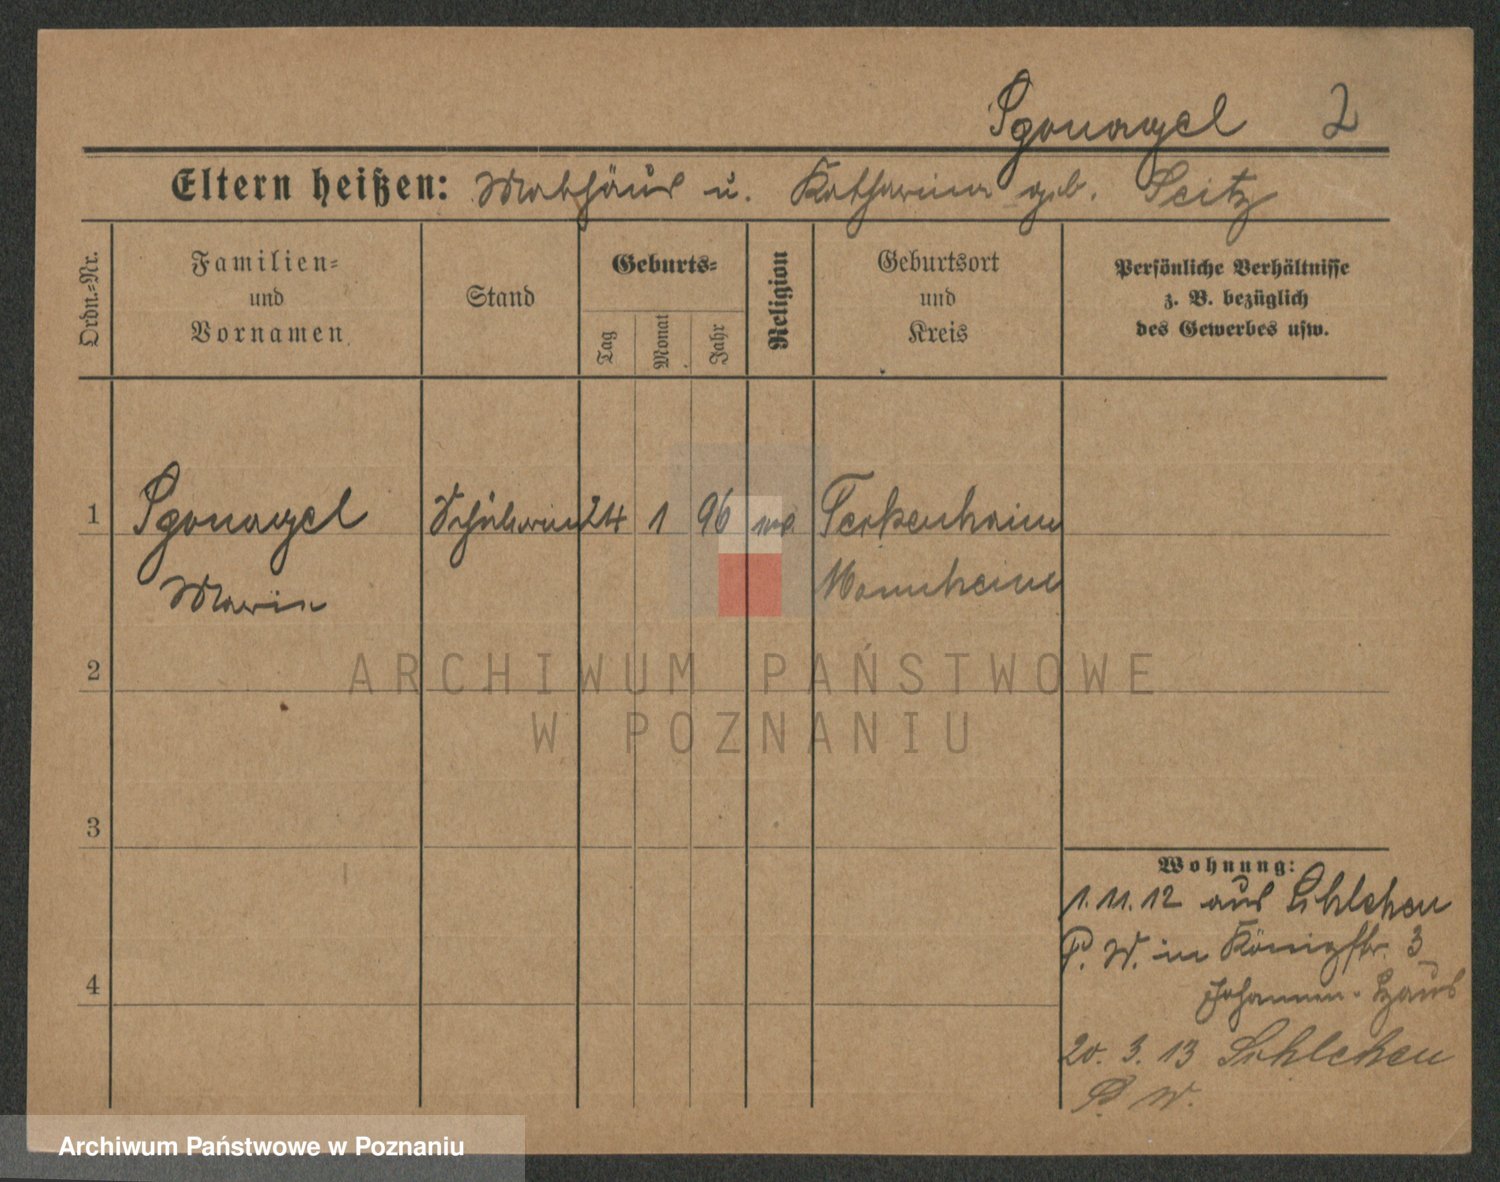 Sponagel 2
Eltern heißen: Mathäus u. Katharina geb. Seitz
Ordn.-Nr.
Familien-
und
Vornamen
Stand
Geburts-
Tag
Monat
Jahr
Religion
Geburtsort
und
Kreis
Persönliche Verhältnisse
z. B. bezüglich
des Gewerbes usw.
1 Sponagel Schülerin 24 1 96
Marie Mannheim
2
3
4
Wohnung:
1. 11. 12 aus
P. W. in Königstr. 3
Johannen-Haus
20. 3. 13
P. W.
ARCHIWUM PAŃSTWOWE
W POZNANIU
Archiwum Państwowe w Poznaniu